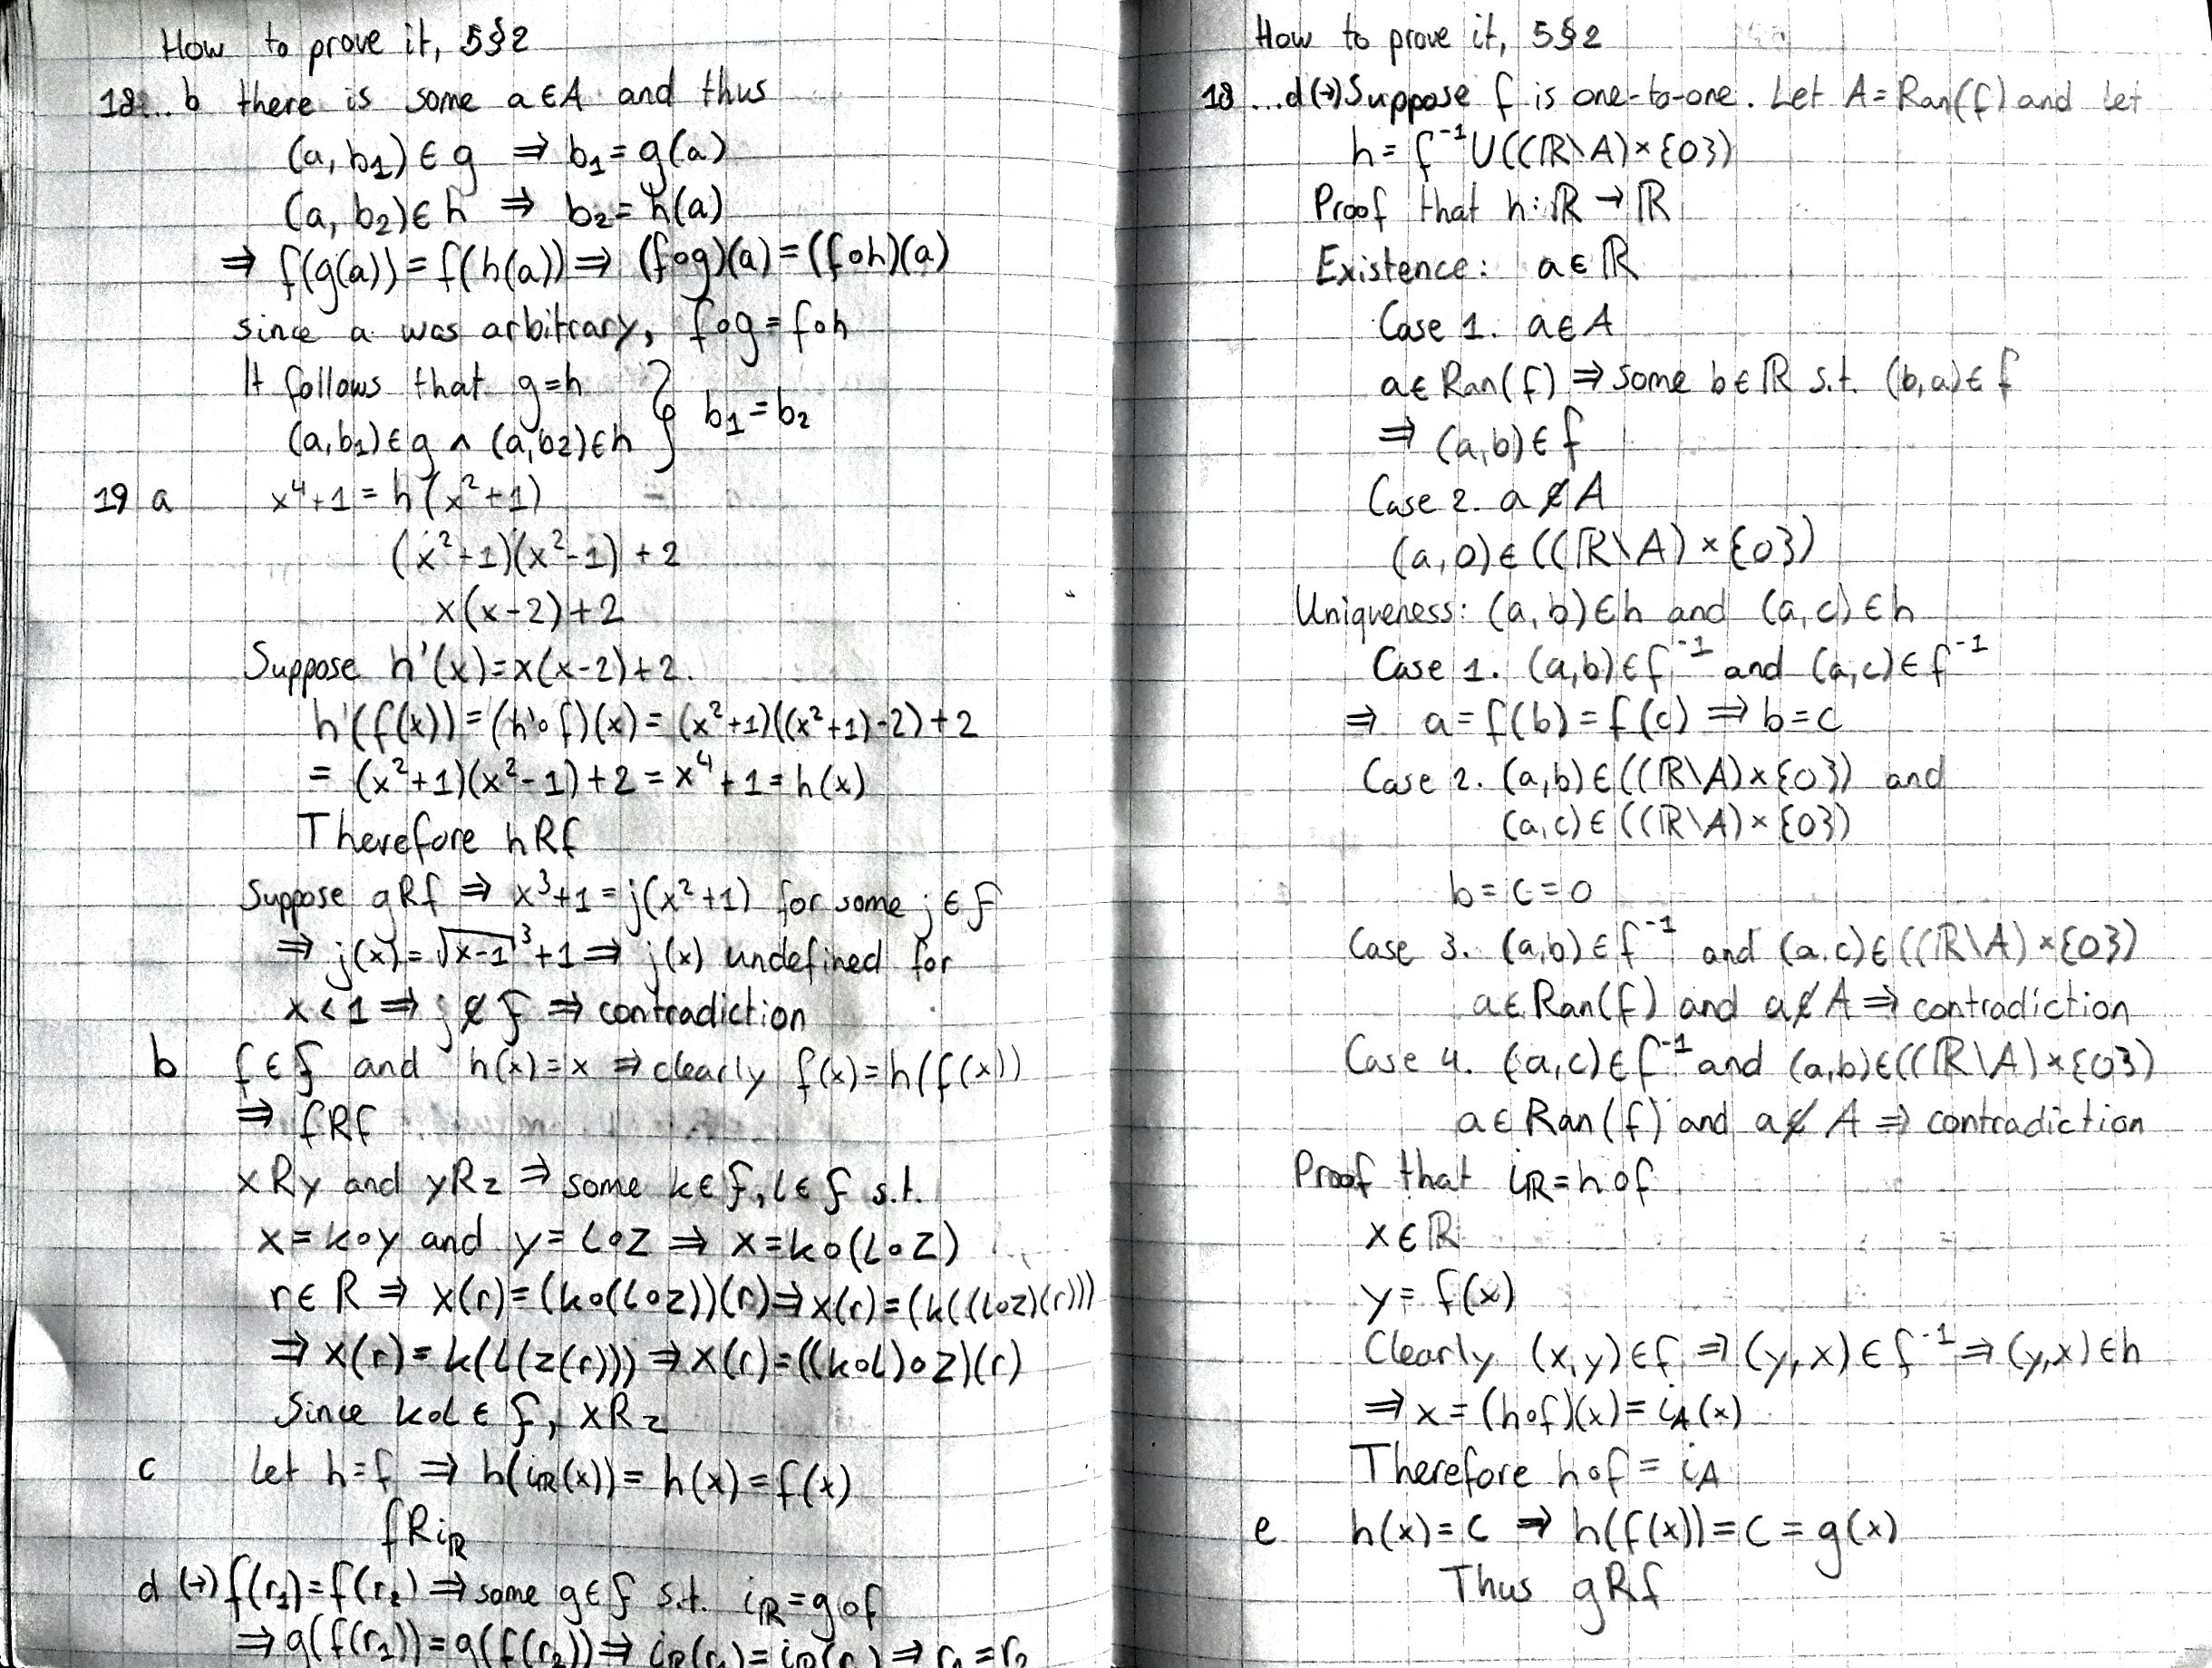 How to prove it, 5§2
18... b there is some a∈A and thus
(a, b₁) ∈ g ⇒ b₁ = g(a)
(a, b₂) ∈ h ⇒ b₂ = h(a)
⇒ f(g(a)) = f(h(a)) ⇒ (f∘g)(a) = (f∘h)(a)
since a was arbitrary, f∘g = f∘h
It follows that g=h
(a,b₁)∈g ∧ (a,b₂)∈h } b₁=b₂
19 a x⁴+1 = h(x²+1)
(x²+1)(x²-1)+2
x(x-2)+2
Suppose h'(x)=x(x-2)+2.
h'(f(x)) = (h'∘f)(x) = (x²+1)((x²+1)-2)+2
= (x²+1)(x²-1)+2 = x⁴+1 = h(x)
Therefore hRf
Suppose gRf ⇒ x³+1 = j(x²+1) for some j∈F
⇒ j(x) = √x-1³+1 ⇒ j(x) undefined for
x<1 ⇒ j∉F ⇒ contradiction
b f∈F and h(x)=x ⇒ clearly f(x)=h(f(x))
⇒ fRf
xRy and yRz ⇒ some k∈F, l∈F s.t.
x=k∘y and y=l∘z ⇒ x=k∘(l∘z)
r∈R ⇒ x(r)=(k∘(l∘z))(r) ⇒ x(r)=(k((l∘z)(r)))
⇒ x(r)=k(l(z(r))) ⇒ x(r)=((k∘l)∘z)(r)
Since k∘l∈F, xRz
c Let h=f ⇒ h(iℝ(x)) = h(x) = f(x)
fRiℝ
d (→) f(r₁)=f(r₂) ⇒ some g∈F s.t. iℝ=g∘f
⇒ g(f(r₁))=g(f(r₂)) ⇒ iℝ(r₁)=iℝ(r₂) ⇒ r₁=r₂
How to prove it, 5§2
18 ...d(→) Suppose f is one-to-one. Let A=Ran(f) and let
h = f⁻¹∪((ℝ\A)×{0})
Proof that h:ℝ→ℝ
Existence: a∈ℝ
Case 1. a∈A
a∈Ran(f) ⇒ some b∈ℝ s.t. (b,a)∈f
⇒ (a,b)∈f
Case 2. a∉A
(a,0)∈((ℝ\A)×{0})
Uniqueness: (a,b)∈h and (a,c)∈h
Case 1. (a,b)∈f⁻¹ and (a,c)∈f⁻¹
⇒ a=f(b)=f(c) ⇒ b=c
Case 2. (a,b)∈((ℝ\A)×{0}) and
(a,c)∈((ℝ\A)×{0})
b=c=0
Case 3. (a,b)∈f⁻¹ and (a,c)∈((ℝ\A)×{0})
a∈Ran(f) and a∉A ⇒ contradiction
Case 4. (a,c)∈f⁻¹ and (a,b)∈((ℝ\A)×{0})
a∈Ran(f) and a∉A ⇒ contradiction
Proof that iℝ=h∘f
x∈ℝ
y=f(x)
Clearly (x,y)∈f ⇒ (y,x)∈f⁻¹ ⇒ (y,x)∈h
⇒ x=(h∘f)(x)=i_A(x)
Therefore h∘f=i_A
e h(x)=c ⇒ h(f(x))=c=g(x)
Thus gRf